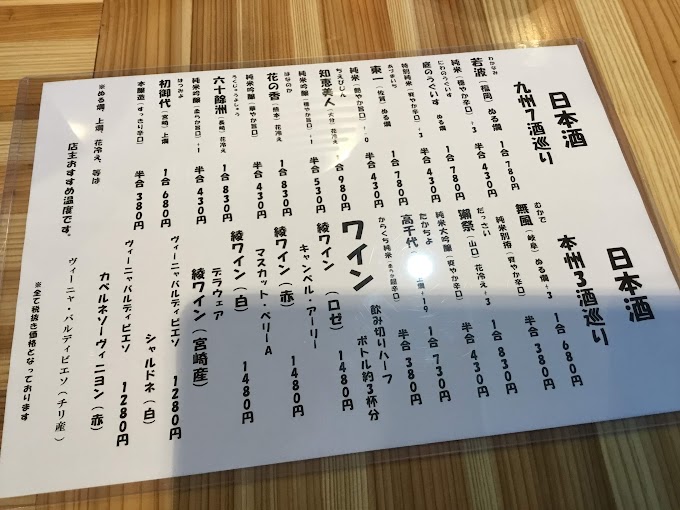 日本酒
九州7酒巡り
わかなみ
若波(福岡)ぬる燗 1合780円
純米(穏やか辛口)+3 半合430円
にわのうぐいす
庭のうぐいす 1合780円
特別純米(爽やか辛口)+3 半合430円
あづまいち
東一(佐賀)ぬる燗
純米(艶やか旨口)+0
ちえびじん
知恵美人(大分)花冷え 1合980円
純米吟醸(穏やか旨口)+1 半合530円
はなのか
花の香(熊本)花冷え 1合830円
純米吟醸(華やか旨口) 半合430円
ろくじゅうよしゅう
六十餘洲(長崎)花冷え 1合830円
純米吟醸(柔らか旨口)+1 半合430円
はつみよ
初御代(宮崎)上燗 1合680円
本醸造(すっきり辛口) 半合380円
※ぬる燗、上燗、花冷え、等は
店主おすすめ温度です。
日本酒
本州3酒巡り
むかで
無風(岐阜)ぬる燗+3 1合680円
純米別捨(爽やか辛口) 半合380円
だっさい
獺祭(山口)花冷え+3 1合830円
純米大吟醸(爽やか辛口) 半合430円
たかちよ
高千代 上燗+19 1合730円
からくち純米(まろやか超辛口) 半合380円
ワイン 飲み切りハーフ
ボトル約3杯分
綾ワイン(ロゼ) 1480円
キャンベル・アーリー
綾ワイン(赤) 1480円
マスカット・ベリーA
綾ワイン(白) 1480円
デラウェア
綾ワイン(宮崎産)
ヴィーニャバルディビエソ 1280円
シャルドネ(白)
ヴィーニャバルディビエソ 1280円
カベルネソーヴィニヨン(赤)
ヴィーニャ・バルディビエソ(チリ産)
※全て税抜き価格となっております